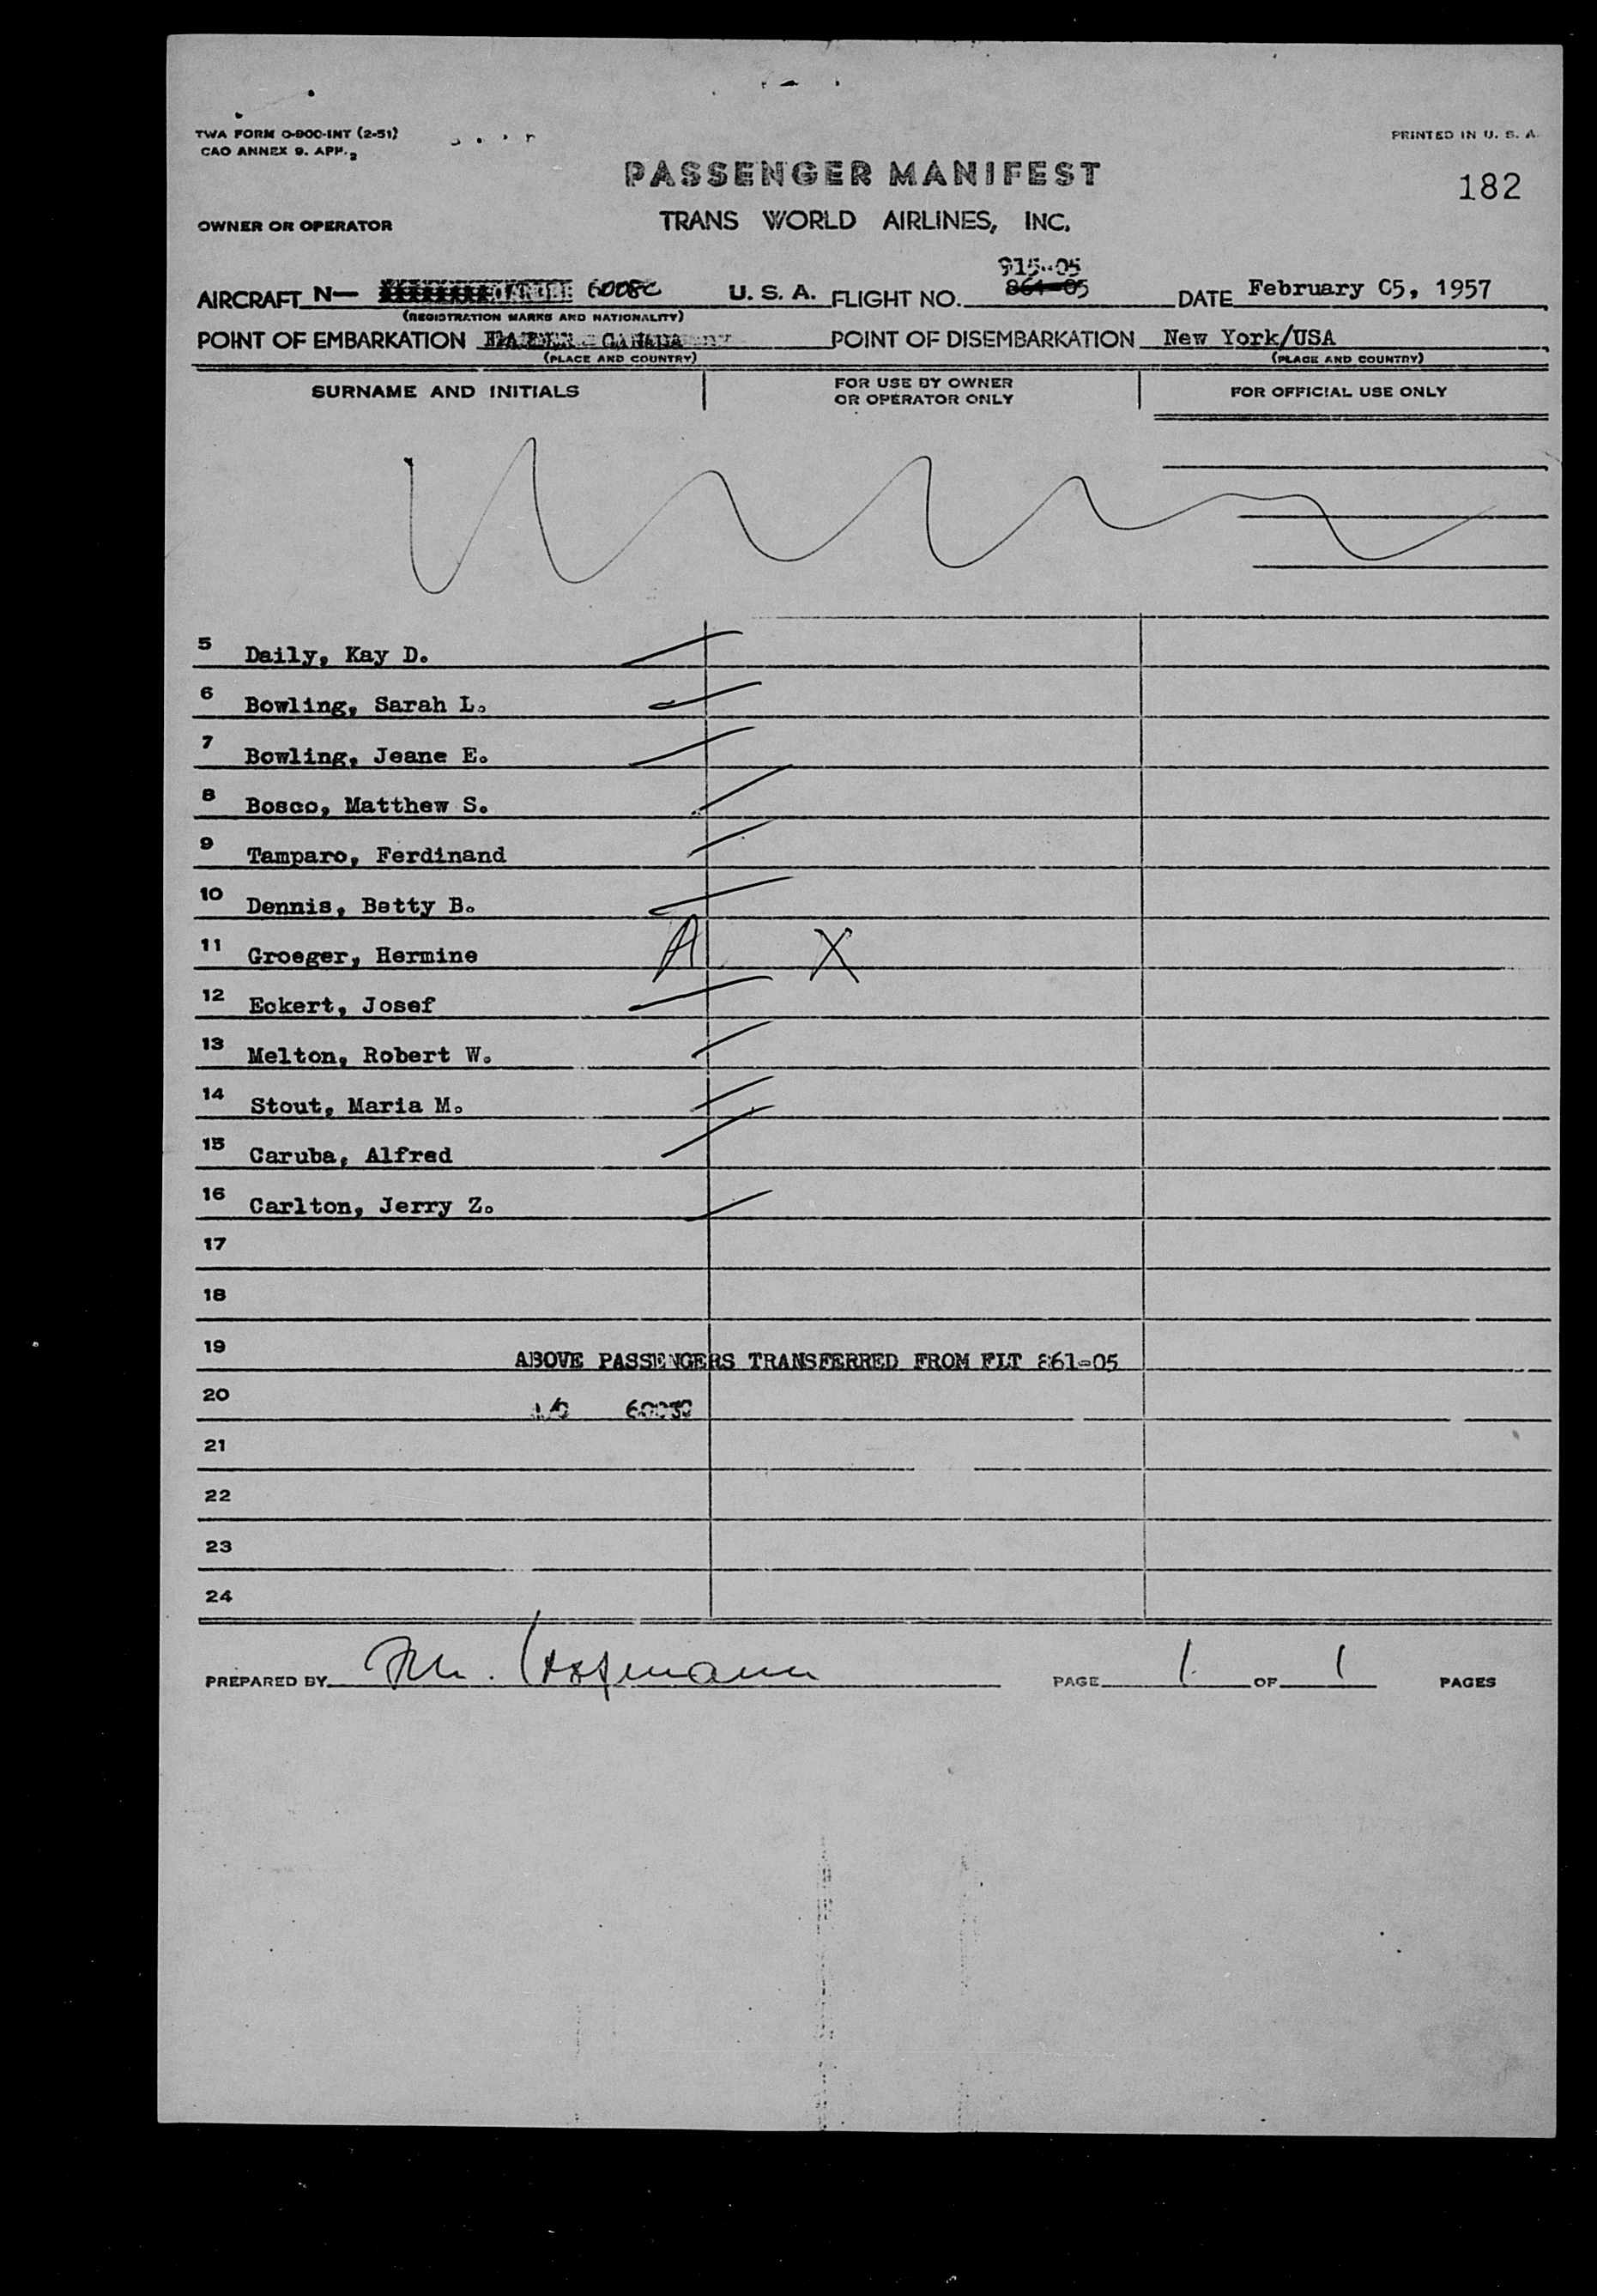 TWA FORM O-900-INT (2-51)
CAO ANNEX 9. APP. 2
PRINTED IN U. S. A.
PASSENGER MANIFEST
182
OWNER OR OPERATOR
TRANS WORLD AIRLINES, INC.
915-05
AIRCRAFT N— U. S. A. FLIGHT NO. 861-05 DATE February 05, 1957
(REGISTRATION MARKS AND NATIONALITY)
POINT OF EMBARKATION CANADA POINT OF DISEMBARKATION New York/USA
(PLACE AND COUNTRY) (PLACE AND COUNTRY)
SURNAME AND INITIALS
FOR USE BY OWNER
OR OPERATOR ONLY
FOR OFFICIAL USE ONLY
5 Daily, Kay D.
6 Bowling, Sarah L.
7 Bowling, Jeane E.
8 Bosco, Matthew S.
9 Tamparo, Ferdinand
10 Dennis, Betty B.
11 Groeger, Hermine A X
12 Eckert, Josef
13 Melton, Robert W.
14 Stout, Maria M.
15 Caruba, Alfred
16 Carlton, Jerry Z.
17
18
19 ABOVE PASSENGERS TRANSFERRED FROM FLT 861-05
20
21
22
23
24
PREPARED BY PAGE 1 OF 1 PAGES